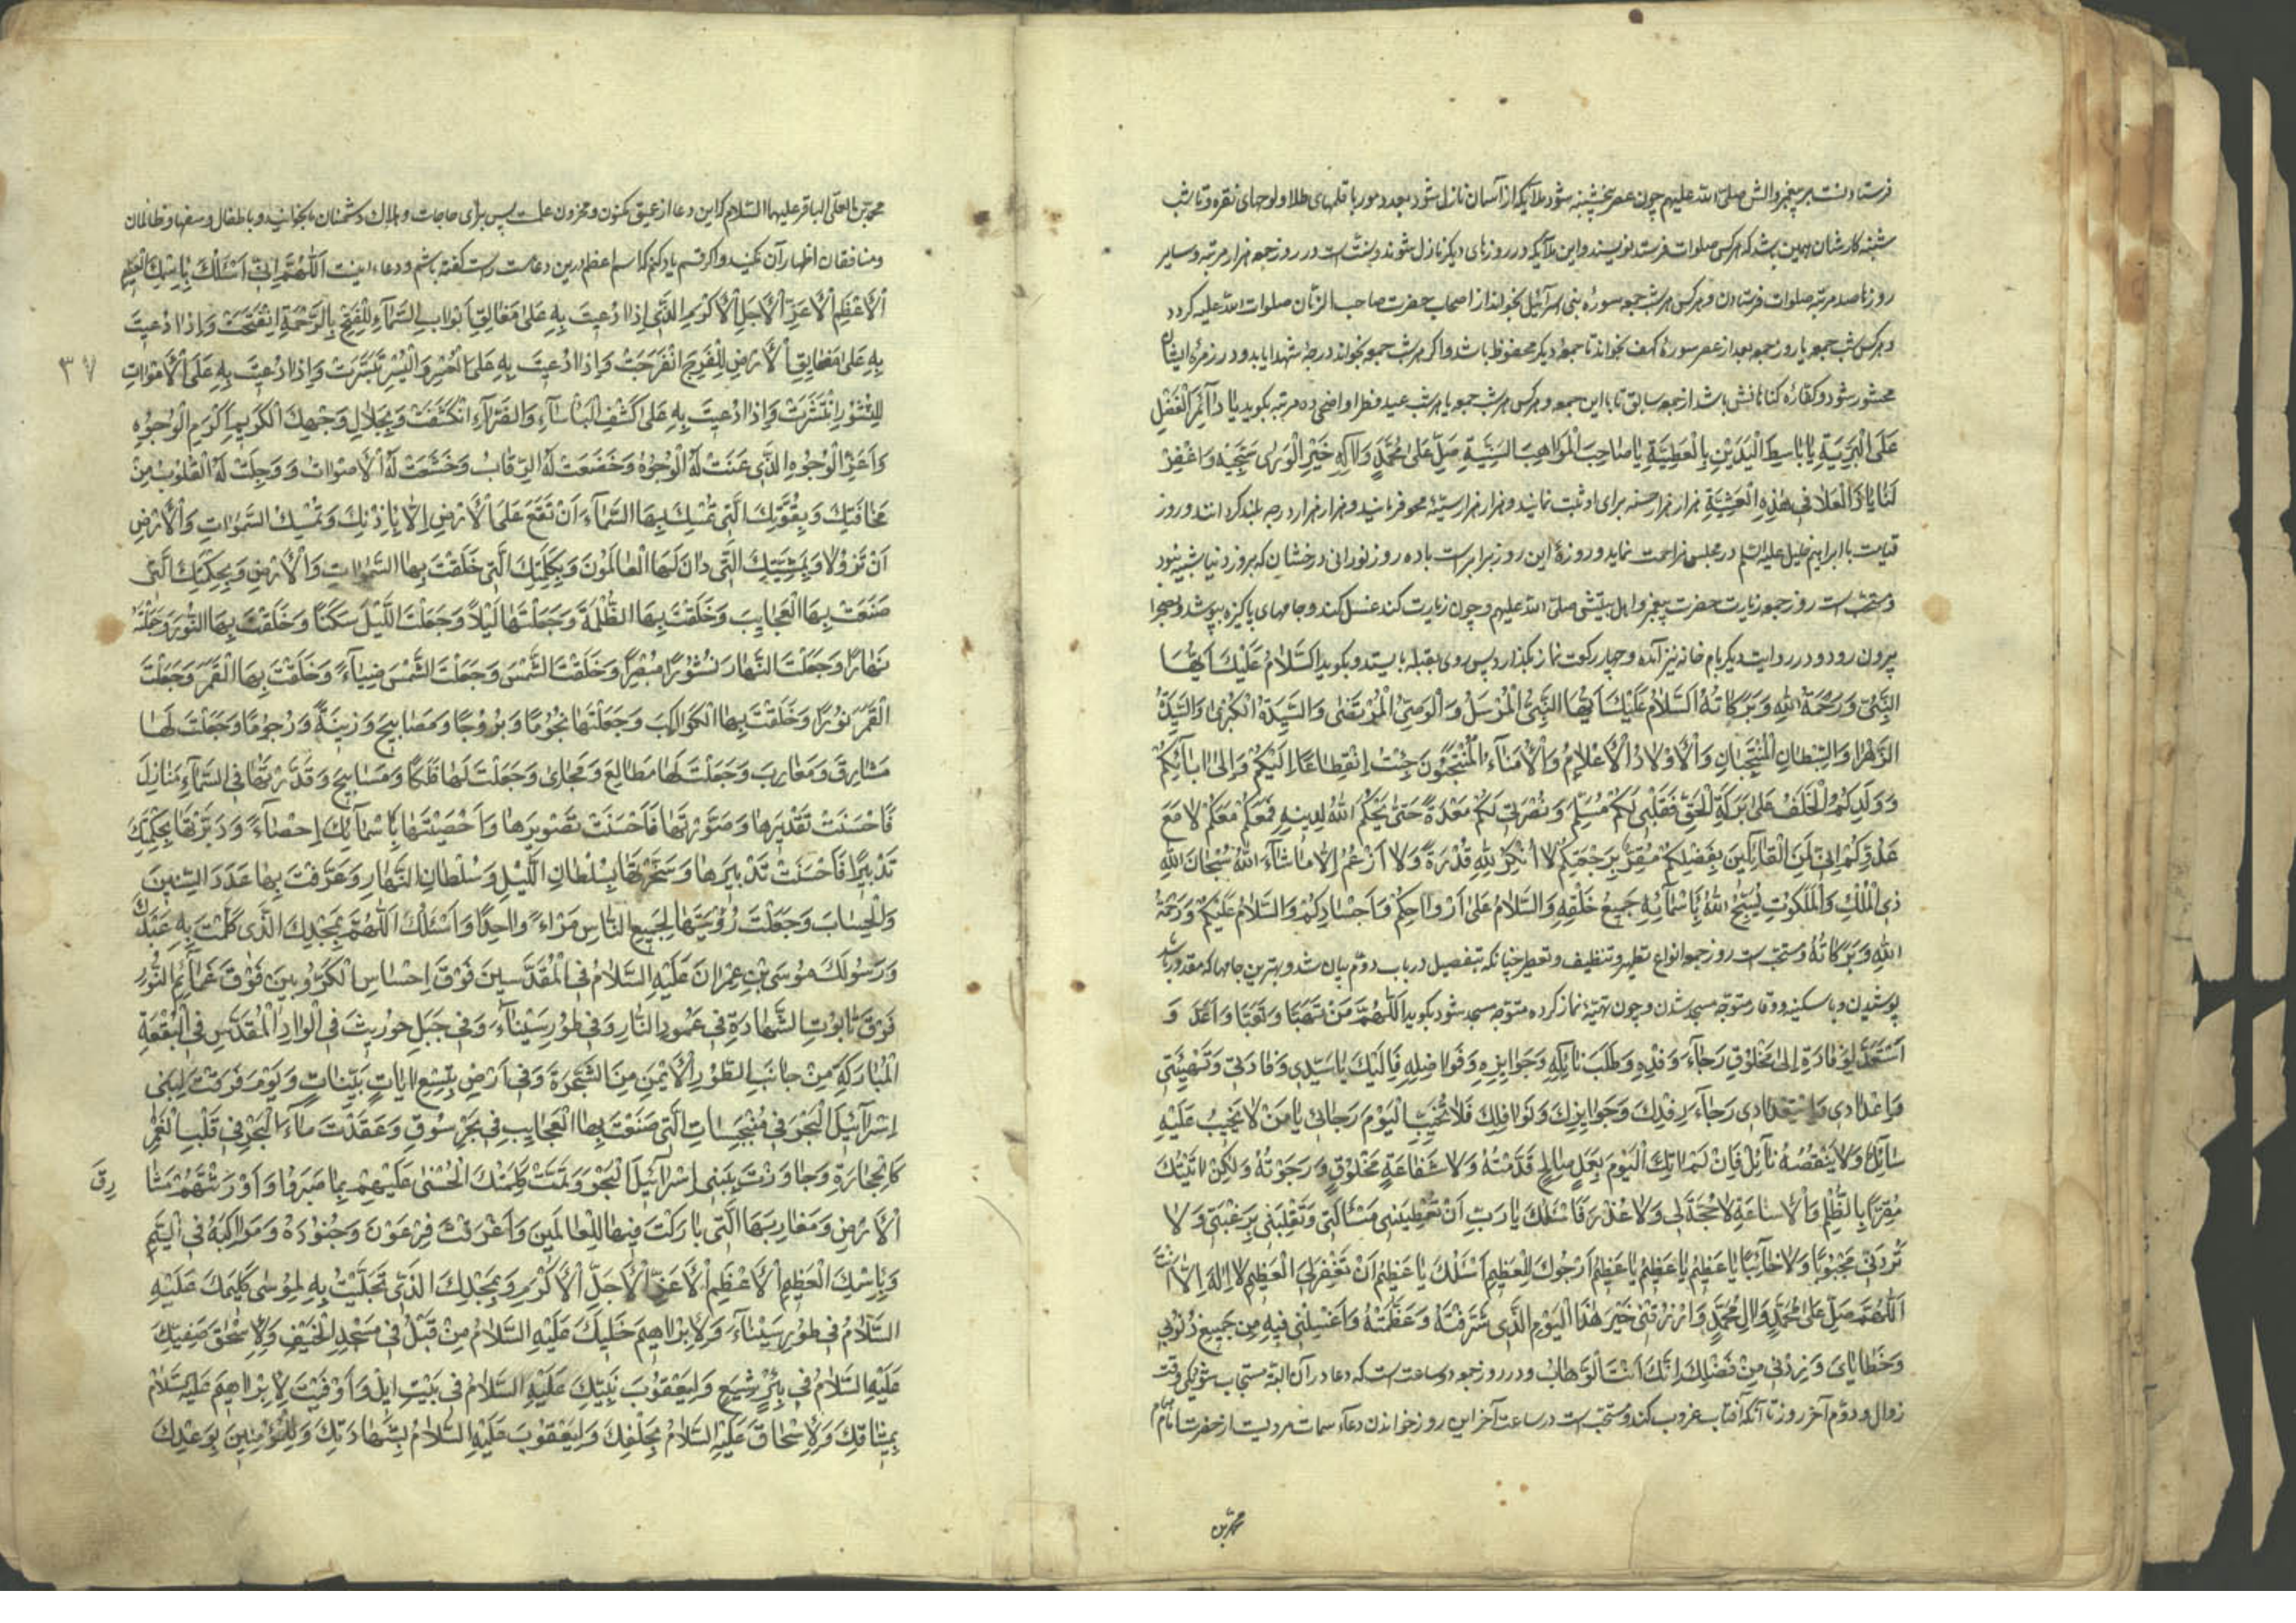 فرستادنست بر پیغمبر و الش صلی الله علیهم چون عصر پنجشنبه شود ملایکه از آسمان نازل شود بعدد مور با قلمهای طلا و لوحهای نقره و تا شب
شنبه کارشان همین باشد که هر کس صلوات فرستد نویسند و این ملایکه در روزهای دیگر نازل نشوند و سنت است در روز جمعه هزار مرتبه و سایر
روزها صد مرتبه صلوات فرستادن و هر کس هر شب جمعه سوره بنی اسرائیل بخواند از اصحاب حضرت صاحب الزمان صلوات الله علیه گردد
و هر کس شب جمعه یا روز جمعه بعد از عصر سوره کهف بخواند تا جمعه دیگر محفوظ باشد و اگر هر شب جمعه بخواند درجه شهدا یابد و در زمره ایشان
محشور شود و کفاره گناهانش باشد از جمعه سابق تا باین جمعه و هر کس هر شب جمعه یا هر شب عید فطر و اضحی ده مرتبه بگوید یا دَآئِمَ الْفَضْلِ
عَلَی الْبَرِیَّةِ یا باسِطَ الْیَدَیْنِ بِالْعَطِیَّةِ یا صاحِبَ الْمَواهِبِ السَّنِیَّةِ صَلِّ عَلی مُحَمَّدٍ وَ آلِهِ خَیْرِ الْوَری سَجِیَّةً وَاغْفِرْ
لَنا یا ذَا الْعُلا فی هٰذِهِ الْعَشِیَّةِ هزار هزار حسنه برای او ثبت نمایند و هزار هزار سیئه محو فرمایند و هزار هزار درجه بلند گردانند و روز
قیامت با ابراهیم خلیل علیه السلم در مجلس مزاحمت نماید و روزهٔ این روز برابرست با ده روز نورانی درخشان که بروز دنیا شبیه نبود
و سنتست روز جمعه زیارت حضرت پیغمبر و اهل بیتش صلی الله علیهم و چون زیارت کند غسل کند و جامهای پاکیزه بپوشد و بصحرا
بیرون رود و در روایت دیگر بام خانه نیز آمده و چهار رکعت نماز بگذارد پس روی بقبله بایستد و بگوید اَلسَّلامُ عَلَیْكَ اَیُّهَا
النَّبِیُّ وَ رَحْمَةُ اللهِ وَ بَرَکاتُهُ اَلسَّلامُ عَلَیْكَ اَیُّهَا النَّبِیُّ الْمُرْسَلُ وَ الْوَصِیُّ الْمُرْتَضٰی وَ السَّیِّدَةُ الْکُبْریٰ وَ السَّیِّدَةُ
الزَّهْراءُ وَ السِّبْطانِ الْمُنْتَجَبانِ وَ الْاَوْلادُ الْاَعْلامُ وَ الْاُمَناءُ الْمُنْتَجَبُونَ جِئْتُ اِنْقِطاعًا اِلَیْکُمْ وَ اِلیٰ ابائِکُمْ
وَ وَلَدِکُمُ الْخَلَفِ عَلیٰ بَرَکَةِ الْحَقِّ فَقَلْبی لَکُمْ مُسَلِّمٌ وَ نُصْرَتی لَکُمْ مُعَدَّةٌ حَتّیٰ یَحْکُمَ اللهُ لِدینِهِ فَمَعَکُمْ مَعَکُمْ لا مَعَ
عَدُوِّکُمْ اِنّی لَمِنَ الْقائِلینَ بِفَضْلِکُمْ مُقِرٌّ بِرَجْعَتِکُمْ لا اُنْکِرُ لِلّٰهِ قُدْرَةً وَلا اَزْعُمُ اِلّا ما شاءَ اللهُ سُبْحانَ اللهِ
ذِی الْمُلْكِ وَ الْمَلَکُوتِ یُسَبِّحُ اللهَ بِاَسْمائِهِ جَمیعُ خَلْقِهِ وَالسَّلامُ عَلیٰ اَرْواحِکُمْ وَ اَجْسادِکُمْ وَالسَّلامُ عَلَیْکُمْ وَ رَحْمَةُ
اللهِ وَ بَرَکاتُهُ و سنتست روز جمعه انواع تطهیر و تنظیف و تعطیر چنانکه بتفصیل در باب دوم بیان شد و بهترین جامها که مقدور باشد
پوشیدن و با سکینه و وقار متوجه مسجد شدن و چون تهیئه نماز کرده متوجه مسجد شود بگوید اَللّٰهُمَّ مَنْ تَهَیَّأَ وَ تَعَبَّأَ وَ اَعَدَّ وَ
اسْتَعَدَّ لِوِفادَةٍ اِلیٰ مَخْلُوقٍ رَجاءَ رِفْدِهِ وَ طَلَبَ نائِلِهِ وَ جَوائِزِهِ وَ فَواضِلِهِ فَاِلَیْكَ یا سَیِّدی وِفادَتی وَ تَهْیِئَتی
وَ اِعْدادی وَ اسْتِعْدادی رَجاءَ رِفْدِكَ وَ جَوائِزِكَ وَ نَوافِلِكَ فَلا تُخَیِّبِ الْیَوْمَ رَجائی یا مَنْ لا یَخیبُ عَلَیْهِ
سائِلٌ وَلا یَنْقُصُهُ نائِلٌ فَاِنّی لَمْ اٰتِكَ الْیَوْمَ بِعَمَلٍ صالِحٍ قَدَّمْتُهُ وَلا شَفاعَةِ مَخْلُوقٍ رَجَوْتُهُ وَلٰکِنْ اَتَیْتُكَ
مُقِرًّا بِالظُّلْمِ وَ الْاِساءَةِ لا حُجَّةَ لی وَلا عُذْرَ فَاَسْئَلُكَ یا رَبِّ اَنْ تُعْطِیَنی مَسْأَلَتی وَ تَقْلِبَنی بِرَغْبَتی وَلا
تَرُدَّنی مَجْبُوهًا وَلا خائِبًا یا عَظیمُ یا عَظیمُ یا عَظیمُ اَرْجُوكَ لِلْعَظیمِ اَسْئَلُكَ یا عَظیمُ اَنْ تَغْفِرَ لِیَ الْعَظیمَ لا اِلٰهَ اِلّا اَنْتَ
اَللّٰهُمَّ صَلِّ عَلیٰ مُحَمَّدٍ وَ الِ مُحَمَّدٍ وَ ارْزُقْنی خَیْرَ هٰذَا الْیَوْمِ الَّذی شَرَّفْتَهُ وَ عَظَّمْتَهُ وَ اغْسِلْنی فیهِ مِنْ جَمیعِ ذُنُوبی
وَ خَطایایَ وَ زِدْنی مِنْ فَضْلِكَ اِنَّكَ اَنْتَ الْوَهّابُ و در روز جمعه دو ساعتست که دعا در آن البته مستجاب شود یکی وقت
زوال و دوم آخر روز تا آنکه آفتاب غروب کند و سنتست در ساعت آخر این روز خواندن دعاء سمات مرویست از حضرت امام همام
محمد بن
محمد بن علی الباقر علیهما السلام که این دعا از عمیق مکنون و مخزون علمست پس برای حاجات و هلاك دشمنان بخوانید و باطفال و سفها و ظالمان
و منافقان اظهار آن مکنید و اگر قسم یاد کنم که اسم اعظم درین دعاست راست گفته باشم و دعا اینست اَللّٰهُمَّ اِنّی اَسْئَلُكَ بِاسْمِكَ الْعَظیمِ
الْاَعْظَمِ الْاَعَزِّ الْاَجَلِّ الْاَکْرَمِ الَّذی اِذا دُعیتَ بِهِ عَلیٰ مَغالِقِ اَبْوابِ السَّماءِ لِلْفَتْحِ بِالرَّحْمَةِ انْفَتَحَتْ وَ اِذا دُعیتَ
بِهِ عَلیٰ مَضایِقِ الْاَرْضِ لِلْفَرَجِ انْفَرَجَتْ وَ اِذا دُعیتَ بِهِ عَلَی الْعُسْرِ وَ الْیُسْرِ تَیَسَّرَتْ وَ اِذا دُعیتَ بِهِ عَلَی الْاَمْواتِ
۳۷
لِلنُّشُورِ انْتَشَرَتْ وَ اِذا دُعیتَ بِهِ عَلیٰ کَشْفِ الْبَأْساءِ وَ الضَّرّاءِ انْکَشَفَتْ وَ بِجَلالِ وَجْهِكَ الْکَریمِ اَکْرَمِ الْوُجُوهِ
وَ اَعَزِّ الْوُجُوهِ الَّذی عَنَتْ لَهُ الْوُجُوهُ وَ خَضَعَتْ لَهُ الرِّقابُ وَ خَشَعَتْ لَهُ الْاَصْواتُ وَ وَجِلَتْ لَهُ الْقُلُوبُ مِنْ
مَخافَتِكَ وَ بِقُوَّتِكَ الَّتی تُمْسِكُ بِهَا السَّماءَ اَنْ تَقَعَ عَلَی الْاَرْضِ اِلّا بِاِذْنِكَ وَ تُمْسِكُ السَّمٰواتِ وَ الْاَرْضَ
اَنْ تَزُولا وَ بِمَشِیَّتِكَ الَّتی دانَ لَهَا الْعالَمُونَ وَ بِکَلِمَتِكَ الَّتی خَلَقْتَ بِهَا السَّمٰواتِ وَ الْاَرْضَ وَ بِحِکْمَتِكَ الَّتی
صَنَعْتَ بِهَا الْعَجایِبَ وَ خَلَقْتَ بِهَا الظُّلْمَةَ وَ جَعَلْتَها لَیْلًا وَ جَعَلْتَ اللَّیْلَ سَکَنًا وَ خَلَقْتَ بِهَا النُّورَ وَ جَعَلْتَهُ
نَهارًا وَ جَعَلْتَ النَّهارَ نُشُورًا مُبْصِرًا وَ خَلَقْتَ الشَّمْسَ وَ جَعَلْتَ الشَّمْسَ ضِیاءً وَ خَلَقْتَ بِهَا الْقَمَرَ وَ جَعَلْتَ
الْقَمَرَ نُورًا وَ خَلَقْتَ بِهَا الْکَواکِبَ وَ جَعَلْتَها نُجُومًا وَ بُرُوجًا وَ مَصابیحَ وَ زینَةً وَ رُجُومًا وَ جَعَلْتَ لَها
مَشارِقَ وَ مَغارِبَ وَ جَعَلْتَ لَها مَطالِعَ وَ مَجارِیَ وَ جَعَلْتَ لَها فَلَکًا وَ مَسابِحَ وَ قَدَّرْتَها فِی السَّماءِ مَنازِلَ
فَاَحْسَنْتَ تَقْدیرَها وَ صَوَّرْتَها فَاَحْسَنْتَ تَصْویرَها وَ اَحْصَیْتَها بِاَسْمائِكَ اِحْصاءً وَ دَبَّرْتَها بِحِکْمَتِكَ
تَدْبیرًا فَاَحْسَنْتَ تَدْبیرَها وَ سَخَّرْتَها بِسُلْطانِ اللَّیْلِ وَ سُلْطانِ النَّهارِ وَ عَرَّفْتَ بِها عَدَدَ السِّنینَ
وَ الْحِسابَ وَ جَعَلْتَ رُؤْیَتَها لِجَمیعِ النّاسِ مَرْاءً واحِدًا وَ اَسْئَلُكَ اللّٰهُمَّ بِمَجْدِكَ الَّذی کَلَّمْتَ بِهِ عَبْدَكَ
وَ رَسُولَكَ مُوسَی بْنَ عِمْرانَ عَلَیْهِ السَّلامُ فِی الْمُقَدَّسینَ فَوْقَ اِحْساسِ الْکَرُّوبینَ فَوْقَ غَمائِمِ النُّورِ
فَوْقَ تابُوتِ الشَّهادَةِ فی عَمُودِ النّارِ وَ فی طُورِ سَیْناءَ وَ فی جَبَلِ حُوریثَ فِی الْوادِ الْمُقَدَّسِ فِی الْبُقْعَةِ
الْمُبارَکَةِ مِنْ جانِبِ الطُّورِ الْاَیْمَنِ مِنَ الشَّجَرَةِ وَ فی اَرْضِ بِتِسْعِ ایاتٍ بَیِّناتٍ وَ یَوْمَ فَرَقْتَ لِبَنی
اِسْرآئیلَ الْبَحْرَ وَ فِی مُنْبَجِساتِ الَّتی صَنَعْتَ بِهَا الْعَجایِبَ فی بَحْرِ سُوفٍ وَ عَقَدْتَ ماءَ الْبَحْرِ فی قَلْبِ الْغَمْرِ
کَالْحِجارَةِ وَ جاوَزْتَ بِبَنی اِسْرائیلَ الْبَحْرَ وَ تَمَّتْ کَلِمَتُكَ الْحُسْنیٰ عَلَیْهِمْ بِما صَبَرُوا وَ اَوْرَثْتَهُمْ مَشا
رِقَ
الْاَرْضِ وَ مَغارِبَهَا الَّتی بارَکْتَ فیها لِلْعالَمینَ وَ اَغْرَقْتَ فِرْعَوْنَ وَ جُنُودَهُ وَ مَراکِبَهُ فِی الْیَمِّ
وَ بِاسْمِكَ الْعَظیمِ الْاَعْظَمِ الْاَعَزِّ الْاَجَلِّ الْاَکْرَمِ وَ بِمَجْدِكَ الَّذی تَجَلَّیْتَ بِهِ لِمُوسیٰ کَلیمِكَ عَلَیْهِ
السَّلامُ فی طُورِ سَیْناءَ وَ لِاِبْراهیمَ خَلیلِكَ عَلَیْهِ السَّلامُ مِنْ قَبْلُ فی مَسْجِدِ الْخَیْفِ وَ لِاِسْحٰقَ صَفِیِّكَ
عَلَیْهِ السَّلامُ فی بِئْرِ شِیَعٍ وَ لِیَعْقُوبَ نَبِیِّكَ عَلَیْهِ السَّلامُ فی بَیْتِ ایلٍ وَ اَوْفَیْتَ لِاِبْراهیمَ عَلَیْهِ السَّلامُ
بِمیثاقِكَ وَ لِاِسْحاقَ عَلَیْهِ السَّلامُ بِحَلْفِكَ وَ لِیَعْقُوبَ عَلَیْهِ السَّلامُ بِشَهادَتِكَ وَ لِلْمُؤْمِنینَ بِوَعْدِكَ